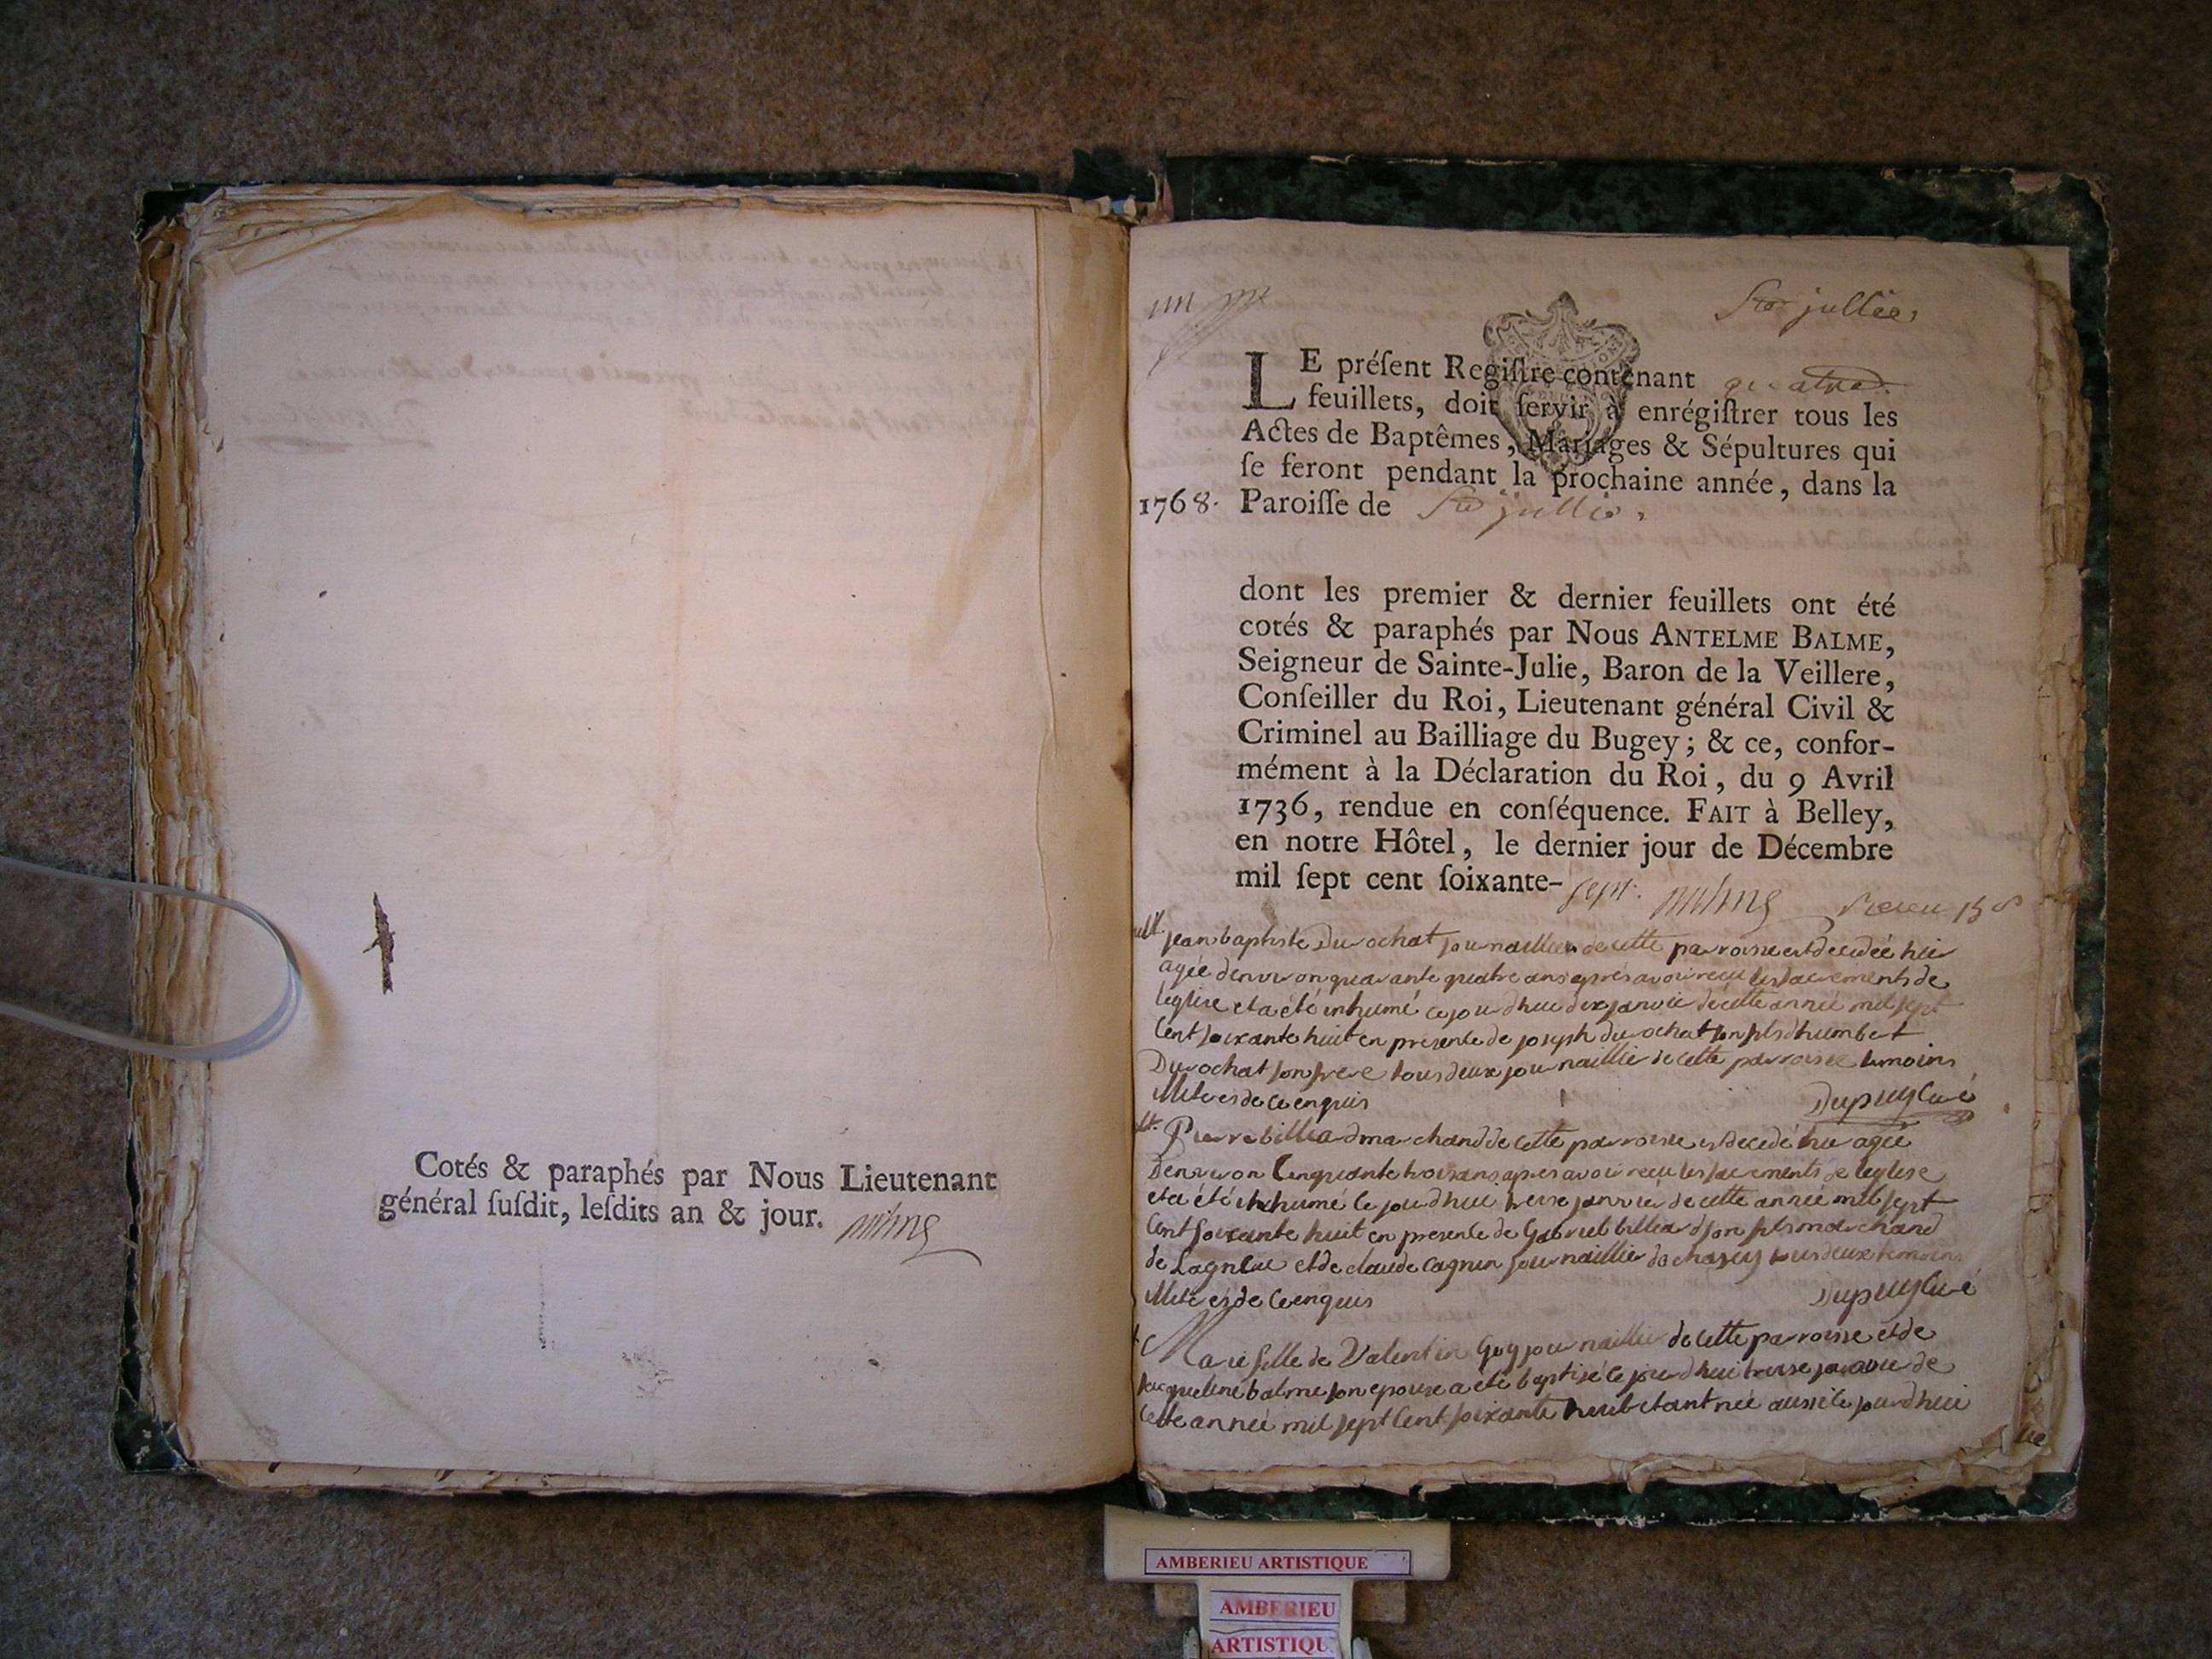 Cotés & paraphés par Nous Lieutenant
général ſuſdit, leſdits an & jour.
Ste jullie,
LE préſent Regiſtre contenant quatre
feuillets, doit ſervir à enrégiſtrer tous les
Actes de Baptêmes, Mariages & Sépultures qui
ſe feront pendant la prochaine année, dans la
1768. Paroiſſe de Ste jullie,
dont les premier & dernier feuillets ont été
cotés & paraphés par Nous ANTELME BALME,
Seigneur de Sainte-Julie, Baron de la Veillere,
Conſeiller du Roi, Lieutenant général Civil &
Criminel au Bailliage du Bugey; & ce, confor-
mément à la Déclaration du Roi, du 9 Avril
1736, rendue en conſéquence. FAIT à Belley,
en notre Hôtel, le dernier jour de Décembre
mil ſept cent ſoixante-sept.
jean baptiste Durochat journaillier de cette parroisse est decedée hier
agée denviron quarante quatre ans apres avoir reçu les sacrements de
leglise et a été inhumé ce jourdhui dix janvier de cette année mil sept
Cent soixante huit en presence de joseph Durochat son fils dhumbert
Durochat son frere tous deux journaillier de cette parroisse temoins
illiteres de ce enquis Dupuy Curé
Pierre billiard marchand de cette parroisse est decedé hier agée
Denviron Cinquante trois ans apres avoir reçu les sacrements de leglise
et a été inhumé ce jourdhui treise janvier de cette année mil sept
Cent soixante huit en presence de Gabriel billiard son fils marchand
de Lagnieu et de claude cagnin journaillier de chasey tous deux temoins
illiteres de ce enquis Dupuy Curé
Marie fille de Valentin Goy journaillier de cette parroisse et de
jacqueline balme son epouse a été baptisé ce jourdhui treise janvier de
Cette année mil sept Cent soixante huit etant née aussi ce jourdhui
AMBERIEU ARTISTIQUE
AMBERIEU
ARTISTIQU